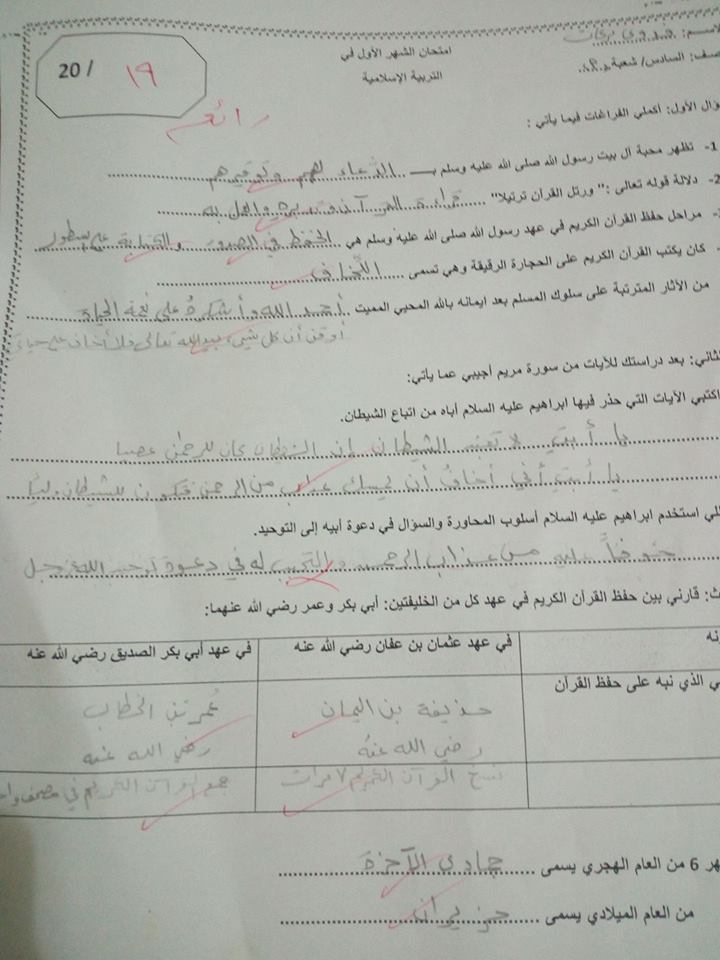 امتحان الشهر الأول في
التربية الإسلامية
20 / ١٩
رائعة
صف: السادس/ شعبة
ؤال الأول: أكملي الفراغات فيما يأتي :
1- تظهر محبة آل بيت رسول الله صلى الله عليه وسلم بـ الدعاء لهم وتوقيرهم
2- دلالة قوله تعالى :" ورتل القرآن ترتيلا" قراءة القرآن وتدبره والعمل به
مراحل حفظ القرآن الكريم في عهد رسول الله صلى الله عليه وسلم هي الحفظ في الصدور والكتابة على سطور
كان يكتب القرآن الكريم على الحجارة الرقيقة وهي تسمى اللخاف
من الآثار المترتبة على سلوك المسلم بعد ايمانه بالله المحيي المميت أحمد الله وأشكره على نعمة الحياة
أوقن أن كل شيء بيد الله تعالى ولا أخاف على حياة
لثاني: بعد دراستك للآيات من سورة مريم أجيبي عما يأتي:
اكتبي الآيات التي حذر فيها ابراهيم عليه السلام أباه من اتباع الشيطان.
يا أبت لا تعبد الشيطان إن الشيطان كان للرحمن عصيا
يا أبت أني أخاف أن يمسك عذاب من الرحمن فتكون للشيطان وليًا
للي استخدم ابراهيم عليه السلام أسلوب المحاورة والسؤال في دعوة أبيه إلى التوحيد.
خوفاً عليه من عذاب الرحمن والتقرب له في دعوة توحيد الله عز وجل
ث: قارني بين حفظ القرآن الكريم في عهد كل من الخليفتين: أبي بكر وعمر رضي الله عنهما:
نه في عهد عثمان بن عفان رضي الله عنه في عهد أبي بكر الصديق رضي الله عنه
ي الذي نبه على حفظ القرآن حذيفة بن اليمان عمر بن الخطاب
رضي الله عنه رضي الله عنه
نسخ القرآن الكريم ٧ مرات جمع القرآن الكريم في مصحف واح
هر 6 من العام الهجري يسمى جمادى الآخرة
من العام الميلادي يسمى حزيران